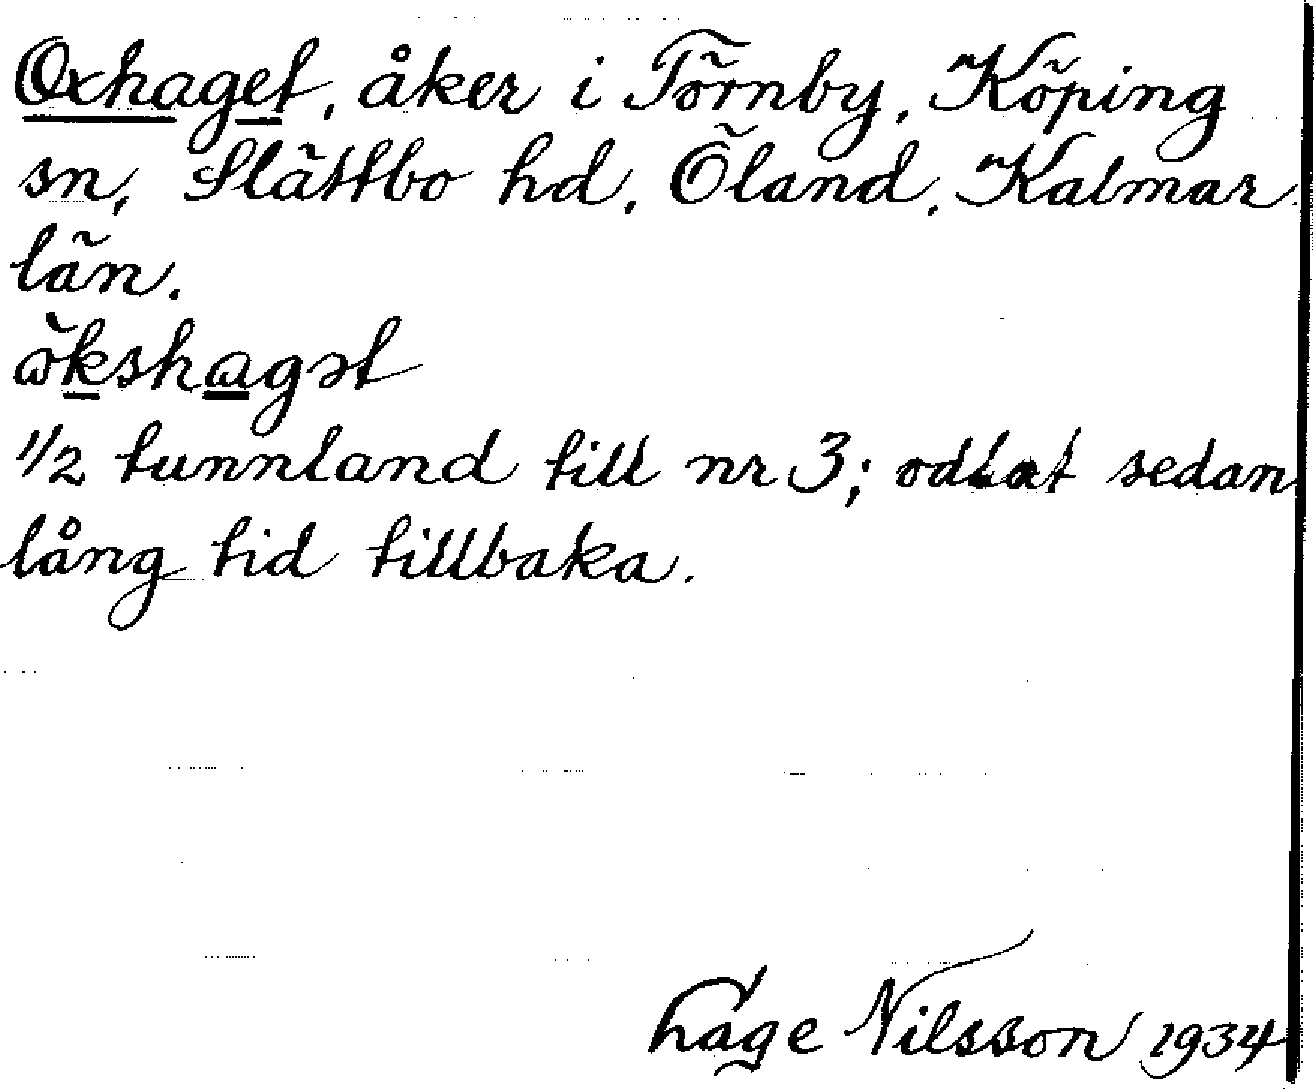 Oxhaget, åker i Törnby, Köping
sn, Slättbo hd, Öland, Kalmar
län.
ökshagət
1/2 tunnland till nr 3; odlat sedan
lång tid tillbaka.
Hage Nilsson 1934